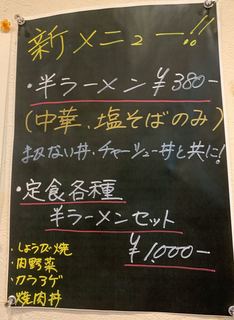 新メニュー!!
・半ラーメン ¥380-
(中華、塩そばのみ)
まかない丼・チャーシュー丼と共に!
・定食各種
半ラーメンセット
¥1,000-
・しょうが焼
・肉野菜
・カラアゲ
・焼肉丼